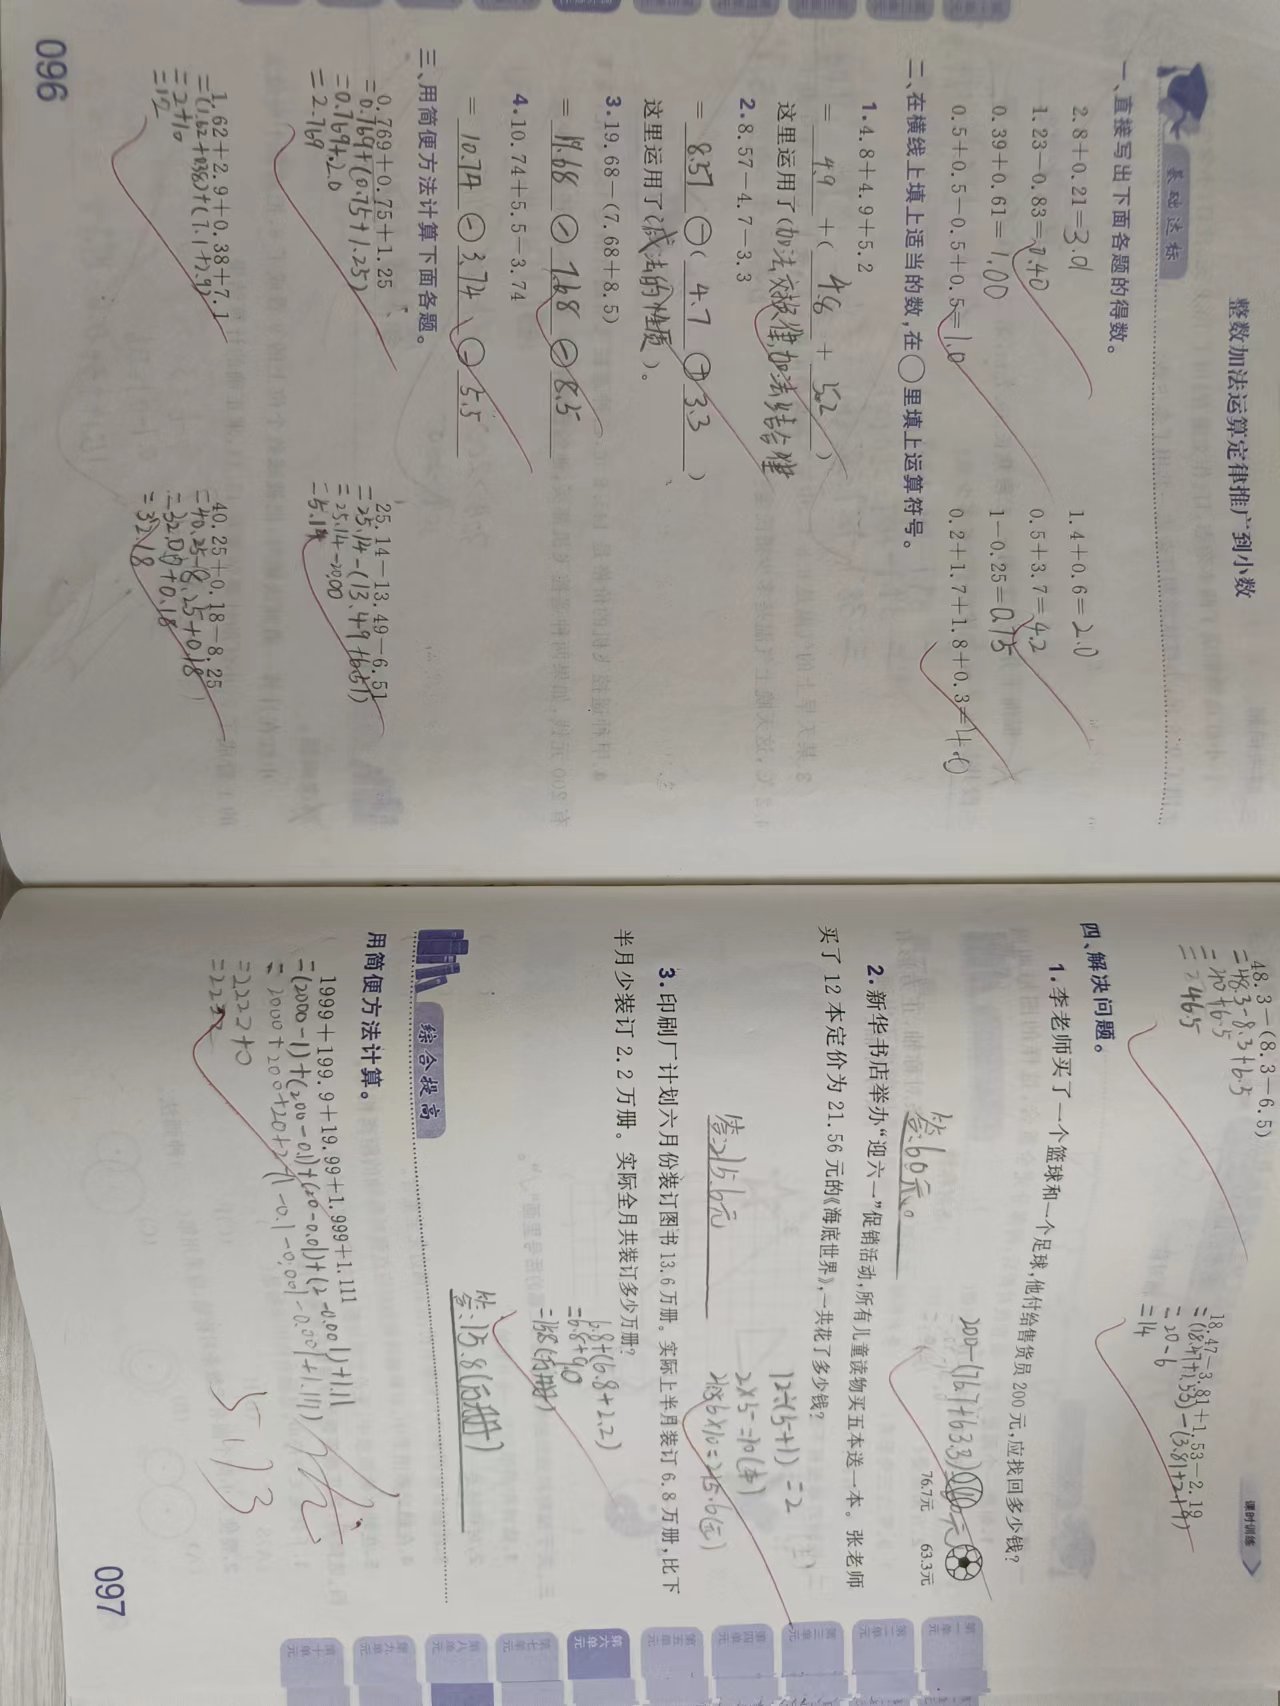 整数加法运算定律推广到小数
基础达标
一、直接写出下面各题的得数。
2.8+0.21=3.01
1.4+0.6=2.0
1.23-0.83=0.40
0.5+3.7=4.2
0.39+0.61=1.00
1-0.25=0.75
0.5+0.5-0.5+0.5=1.0
0.2+1.7+1.8+0.3=4.0
二、在横线上填上适当的数,在○里填上运算符号。
1.4.8+4.9+5.2
=4.9+(4.8+5.2)
这里运用了(加法交换律,加法结合律
2.8.57-4.7-3.3
=8.57-(4.7+3.3)
这里运用了(减法的性质)。
3.19.68-(7.68+8.5)
=19.68-7.68-8.5
4.10.74+5.5-3.74
=10.74-3.74
5.5
三、用简便方法计算下面各题。
0.769+0.75+1.25
=0.769+(0.75+1.25)
=0.769+2.0
=2.769
25.14-13.49-6.51
=25.14-(13.49+6.51)
=25.14-20.00
=5.14
1.62+2.9+0.38+7.1
=(1.62+0.38)+(7.1+2.9)
=2+10
=12
40.25+0.18-8.25
=40.25-8.25+0.18
=32.00+0.18
=32.18
096
课时训练
48.3-(8.3-6.5)
=48.3-8.3+6.5
=40+6.5
=46.5
18.47-3.81+1.53-2.19
=(18.47+1.53)-(3.81+2.19)
=20-6
=14
四、解决问题。
1.李老师买了一个篮球和一个足球,他付给售货员200元,应找回多少钱?
76.7元
63.3元
200-(76.7+63.3)
答:60元。
2.新华书店举办“迎六一”促销活动,所有儿童读物买五本送一本。张老师
买了12本定价为21.56元的《海底世界》,一共花了多少钱?
12÷(5+1)=2
2×5=10(本)
21.56×10=215.6(元)
答:215.6元
3.印刷厂计划六月份装订图书13.6万册。实际上半月装订6.8万册,比下
半月少装订2.2万册。实际全月共装订多少万册?
6.8+(6.8+2.2)
=6.8+9.0
=15.8(万册)
答:15.8(万册)
综合提高
用简便方法计算。
1999+199.9+19.99+1.999+1.111
=(2000-1)+(200-0.1)+(20-0.01)+(2-0.001)+1.111
=2222+0
=2222
5.13
097
第一单元
第二单元
第三单元
第四单元
第五单元
第六单元
第七单元
第八单元
第九单元
第十单元